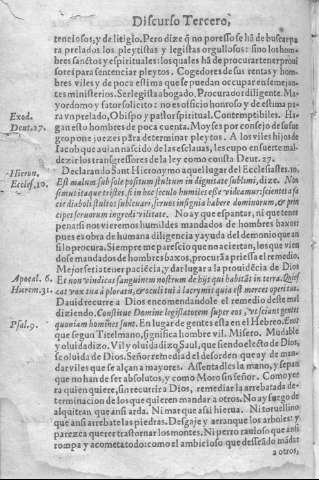 Discurso Tercero,
tenciosos, y de litigio. Pero dize q̃ no por esso se hã de buscar pa
ra prelados los pleytistas y legistas orgullosos: sino los hom-
bres sanctos y espirituales: los quales hã de procurar tener proui
sores para sentenciar pleytos. Cogedores de sus rentas y hom-
bres viles y de poca estima que se puedan occupar en semejan-
tes ministerios. Ser legista abogado. Procurador diligente. Ma
yordomo y fator solicito: no es officio honroso y de estima pa-
ra vn prelado, Obispo y pastor spiritual. Contemptibiles. Ha-
Exod. gan esto hombres de poca cuenta. Moysés por consejo de su sue
Deut. 27. gro pone juezes pãra determinar pleytos. A los viles hijos de
Iacob que auian nascido de las esclauas, les cupo en suerte mal-
dezir los transgressores de la ley como consta Deut. 27.
Hieron. Declarando Sant Hieronymo aquel lugar del Ecclesiastes. 10.
Ecclesi. 10. Est malum sub sole positum stultum in dignitate sublimi, dize. Non
simus itaque tristes, si in hoc seculo humiles esse videamur: scientes a fa
cie diaboli stultos subleuari,
cipes seruorum ingredi
penseis nos vieremos humildes mandados de hombres baxos
pues es obra de humana diligencia y ayuda del demonio que an
si lo procura. Siempre me paresció que no aciertan, los que vien
dose mandados de hombres baxos, procurã a priessa el remedio.
Mejor seria tener paciẽcia, y dar lugar a la prouidẽcia de Dios
Apocal. 6. Et non vindicas sanguinem nostrum de his qui habitãt in terra. Quies
Hierem. 31. cat vox tua à ploratu, & oculi tui à lacrymis quia est merces operi tuo.
Dauid recurre a Dios encomendandole el remedio deste mal
diziendo. Constitue Domine legislatorem super eos, vt sciant gentes
Psal. 9. quoniam homines sunt. En lugar de gentes esta en el Hebreo. Enos
que segun Titelmano, significa hombre vil. Misero. Mudable
y oluidadizo. Vil y oluidadizo Saul, que siendo electo de Dios,
se oluida de Dios. Señor remedia del desorden que ay de man-
dar viles que se alçan a mayores. Assentadles la mano, y sepan
que no han de ser absolutos, y como Moros sin señor. Como ye
ra quien quiere, si a recurrir a Dios, remediar la arrebatada de-
terminacion de los que quieren mandar a otros. No ay fuego de
alquitran que ansi arda. Ni mar que assi hierua. Ni toruellino
que ansi arrebate las piedras. Desgaje y arranque los arboles: y
parezca querer trastornar los montes. Ni perro rauioso que ansi
rompa y acometa todo: como el ambicioso que desseãdo mãdar
a otros,